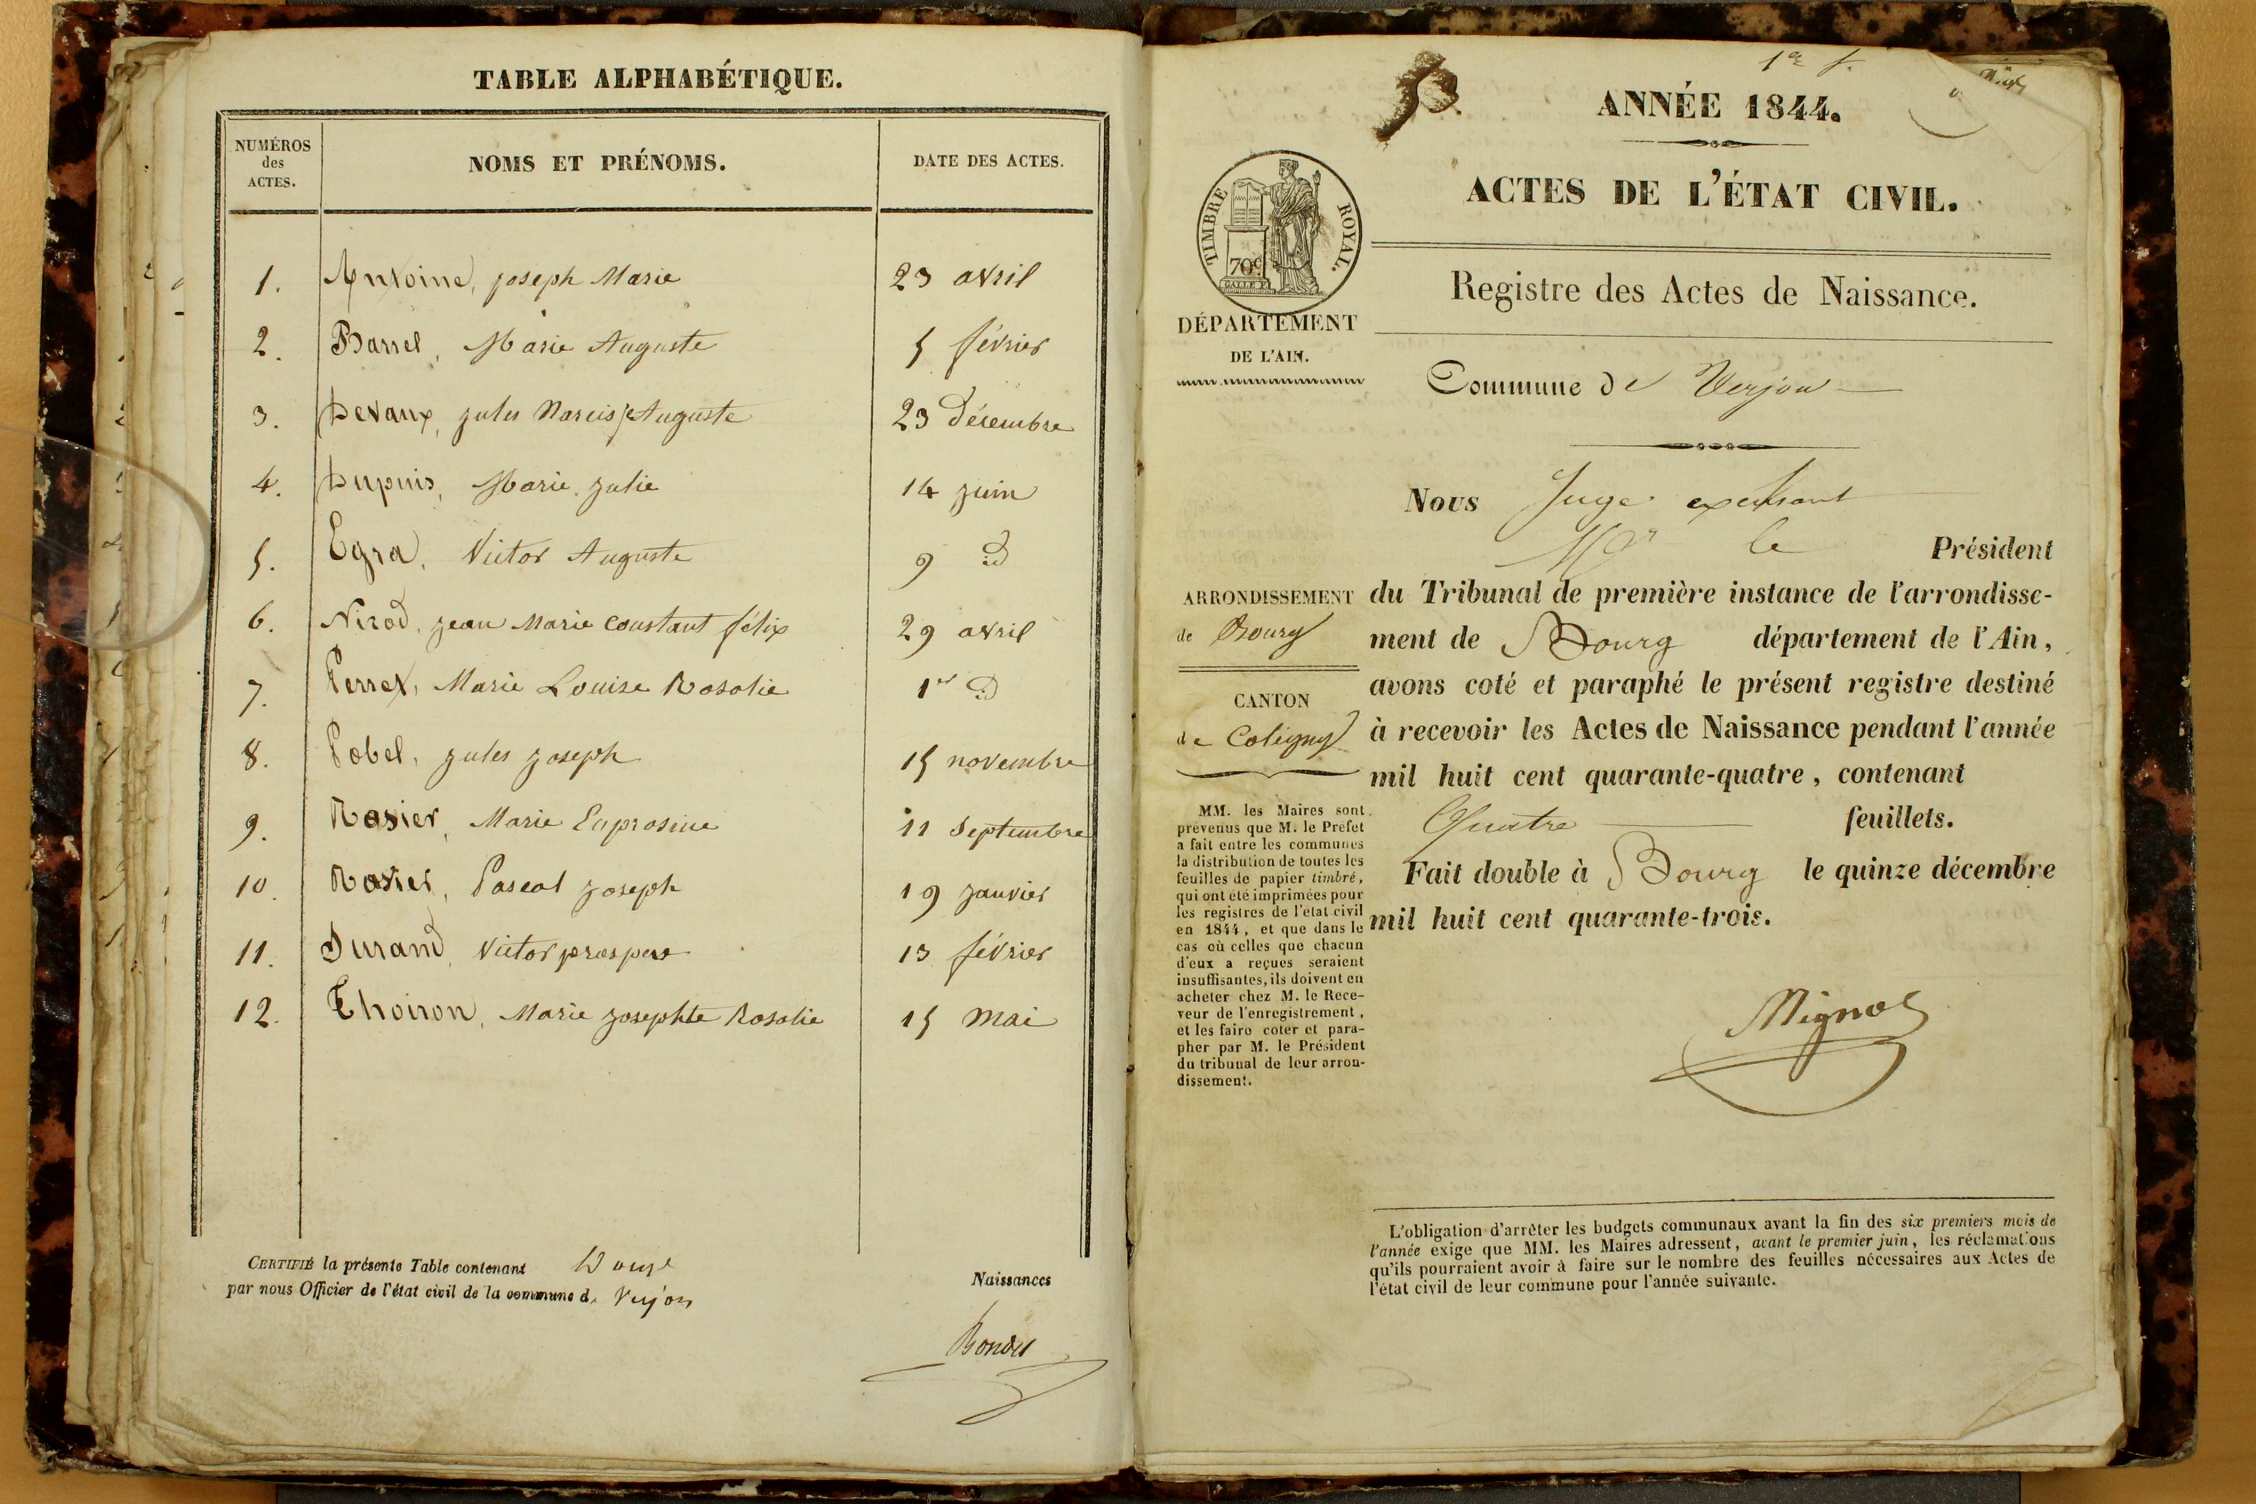 TABLE ALPHABÉTIQUE.
NUMÉROS
des
ACTES.
NOMS ET PRÉNOMS.
DATE DES ACTES.
1. Antoine, joseph Marie 23 avril
2. Barrel, Marie Auguste 5 février
3. Devaux, jules Narcis Auguste 23 décembre
4. Dupuis, Marie julie 14 juin
5. Egra, Victor Auguste 9 d
6. Nirod, jean Marie constant félix 29 avril
7. Perret, Marie Louise Rosalie 1er d
8. Pobel, jules joseph 15 novembre
9. Rosier, Marie Euprosine 11 septembre
10. Rosier, Pascal joseph 19 janvier
11. Durand, Victor prosper 13 février
12. Thoiron, Marie josephte Rosalie 15 mai
CERTIFIÉ la présente Table contenant Douze Naissances
par nous Officier de l'état civil de la commune d. Verjon
Bondet
1er f.
ANNÉE 1844.
ACTES DE L'ÉTAT CIVIL.
TIMBRE ROYAL.
70c
Registre des Actes de Naissance.
DÉPARTEMENT
DE L'AIN.
Commune de Verjon
Nous Juge exerçant
Mr le Président
du Tribunal de première instance de l'arrondisse-
ment de Bourg département de l'Ain,
avons coté et paraphé le présent registre destiné
à recevoir les Actes de Naissance pendant l'année
mil huit cent quarante-quatre, contenant
Quatre feuillets.
Fait double à Bourg le quinze décembre
mil huit cent quarante-trois.
Mignot
ARRONDISSEMENT
de Bourg
CANTON
de Coligny
MM. les Maires sont
prévenus que M. le Préfet
a fait entre les communes
la distribution de toutes les
feuilles de papier timbré,
qui ont été imprimées pour
les registres de l'état civil
en 1844, et que dans le
cas où celles que chacun
d'eux a reçues seraient
insuffisantes, ils doivent en
acheter chez M. le Rece-
veur de l'enregistrement,
et les faire coter et para-
pher par M. le Président
du tribunal de leur arron-
dissement.
L'obligation d'arrêter les budgets communaux avant la fin des six premiers mois de
l'année exige que MM. les Maires adressent, avant le premier juin, les réclamations
qu'ils pourraient avoir à faire sur le nombre des feuilles nécessaires aux Actes de
l'état civil de leur commune pour l'année suivante.